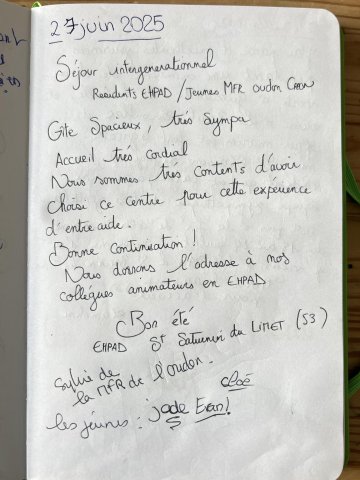 27 juin 2025
Séjour intergenerationnel
Residents EHPAD / Jeunes MFR oudon Craon
Gite Spacieux, très Sympa
Accueil très cordial
Nous sommes très contents d'avoir
choisi ce centre pour cette expérience
d'entre aide.
Bonne continuation !
Nous donnons l'adresse à nos
collègues animateurs en EHPAD
Bon été
EHPAD St Saturnin du LIMET (53)
Sylvie de
la MFR de l'oudon.
Cloé
les jeunes : jade Evan!